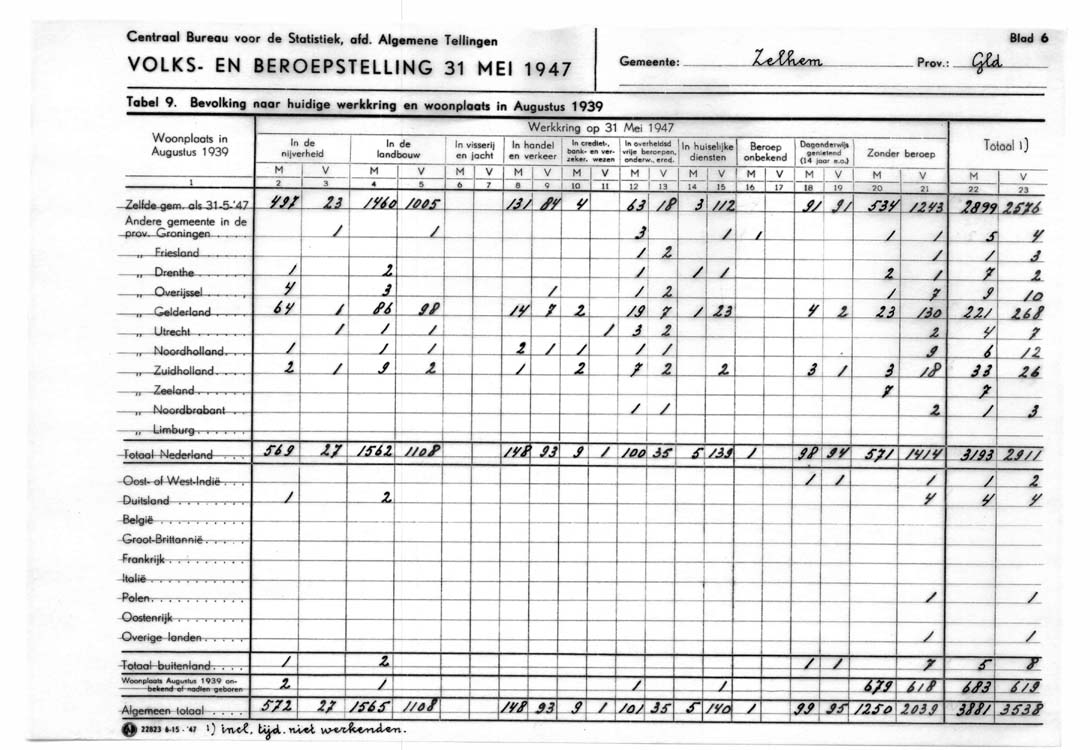 Centraal Bureau voor de Statistiek, afd. Algemene Tellingen
VOLKS- EN BEROEPSTELLING 31 MEI 1947
Gemeente: Zelhem Prov.: Gld
Blad 6
Tabel 9. Bevolking naar huidige werkkring en woonplaats in Augustus 1939
Woonplaats in Augustus 1939
Werkkring op 31 Mei 1947
In de nijverheid In de landbouw In visserij en jacht In handel en verkeer In crediet-, bank- en verzeker. wezen In overheidsd vrije beroepen, onderw., ered. In huiselijke diensten Beroep onbekend Dagonderwijs genietend (14 jaar e.o.) Zonder beroep Totaal 1)
M V M V M V M V M V M V M V M V M V M V M V
1 2 3 4 5 6 7 8 9 10 11 12 13 14 15 16 17 18 19 20 21 22 23
Zelfde gem. als 31-5-'47 497 23 1460 1005 131 84 4 63 18 3 112 91 91 534 1243 2899 2576
Andere gemeente in de
prov. Groningen 1 1 3 1 1 1 1 5 4
„ Friesland 1 2 1 1 3
„ Drenthe 1 2 1 1 1 2 1 7 2
„ Overijssel 4 3 1 1 2 1 7 9 10
„ Gelderland 64 1 86 98 14 7 2 19 7 1 23 4 2 23 130 221 268
„ Utrecht 1 1 1 1 3 2 2 4 7
„ Noordholland 1 1 1 2 1 1 1 1 9 6 12
„ Zuidholland 2 1 9 2 1 2 7 2 2 3 1 3 18 33 26
„ Zeeland 7 7
„ Noordbrabant 1 1 2 1 3
„ Limburg
Totaal Nederland 569 27 1562 1108 148 93 9 1 100 35 5 139 1 98 94 571 1414 3193 2911
Oost- of West-Indië 1 1 1 1 2
Duitsland 1 2 4 4 4
België
Groot-Brittannië
Frankrijk
Italië
Polen 1 1
Oostenrijk
Overige landen 1 1
Totaal buitenland 1 2 1 1 7 5 8
Woonplaats Augustus 1939 on-
bekend of nadien geboren 2 1 1 1 679 618 683 619
Algemeen totaal 572 27 1565 1108 148 93 9 1 101 35 5 140 1 99 95 1250 2039 3881 3538
22823 6-15-'47 1) incl. tijd. niet werkenden.